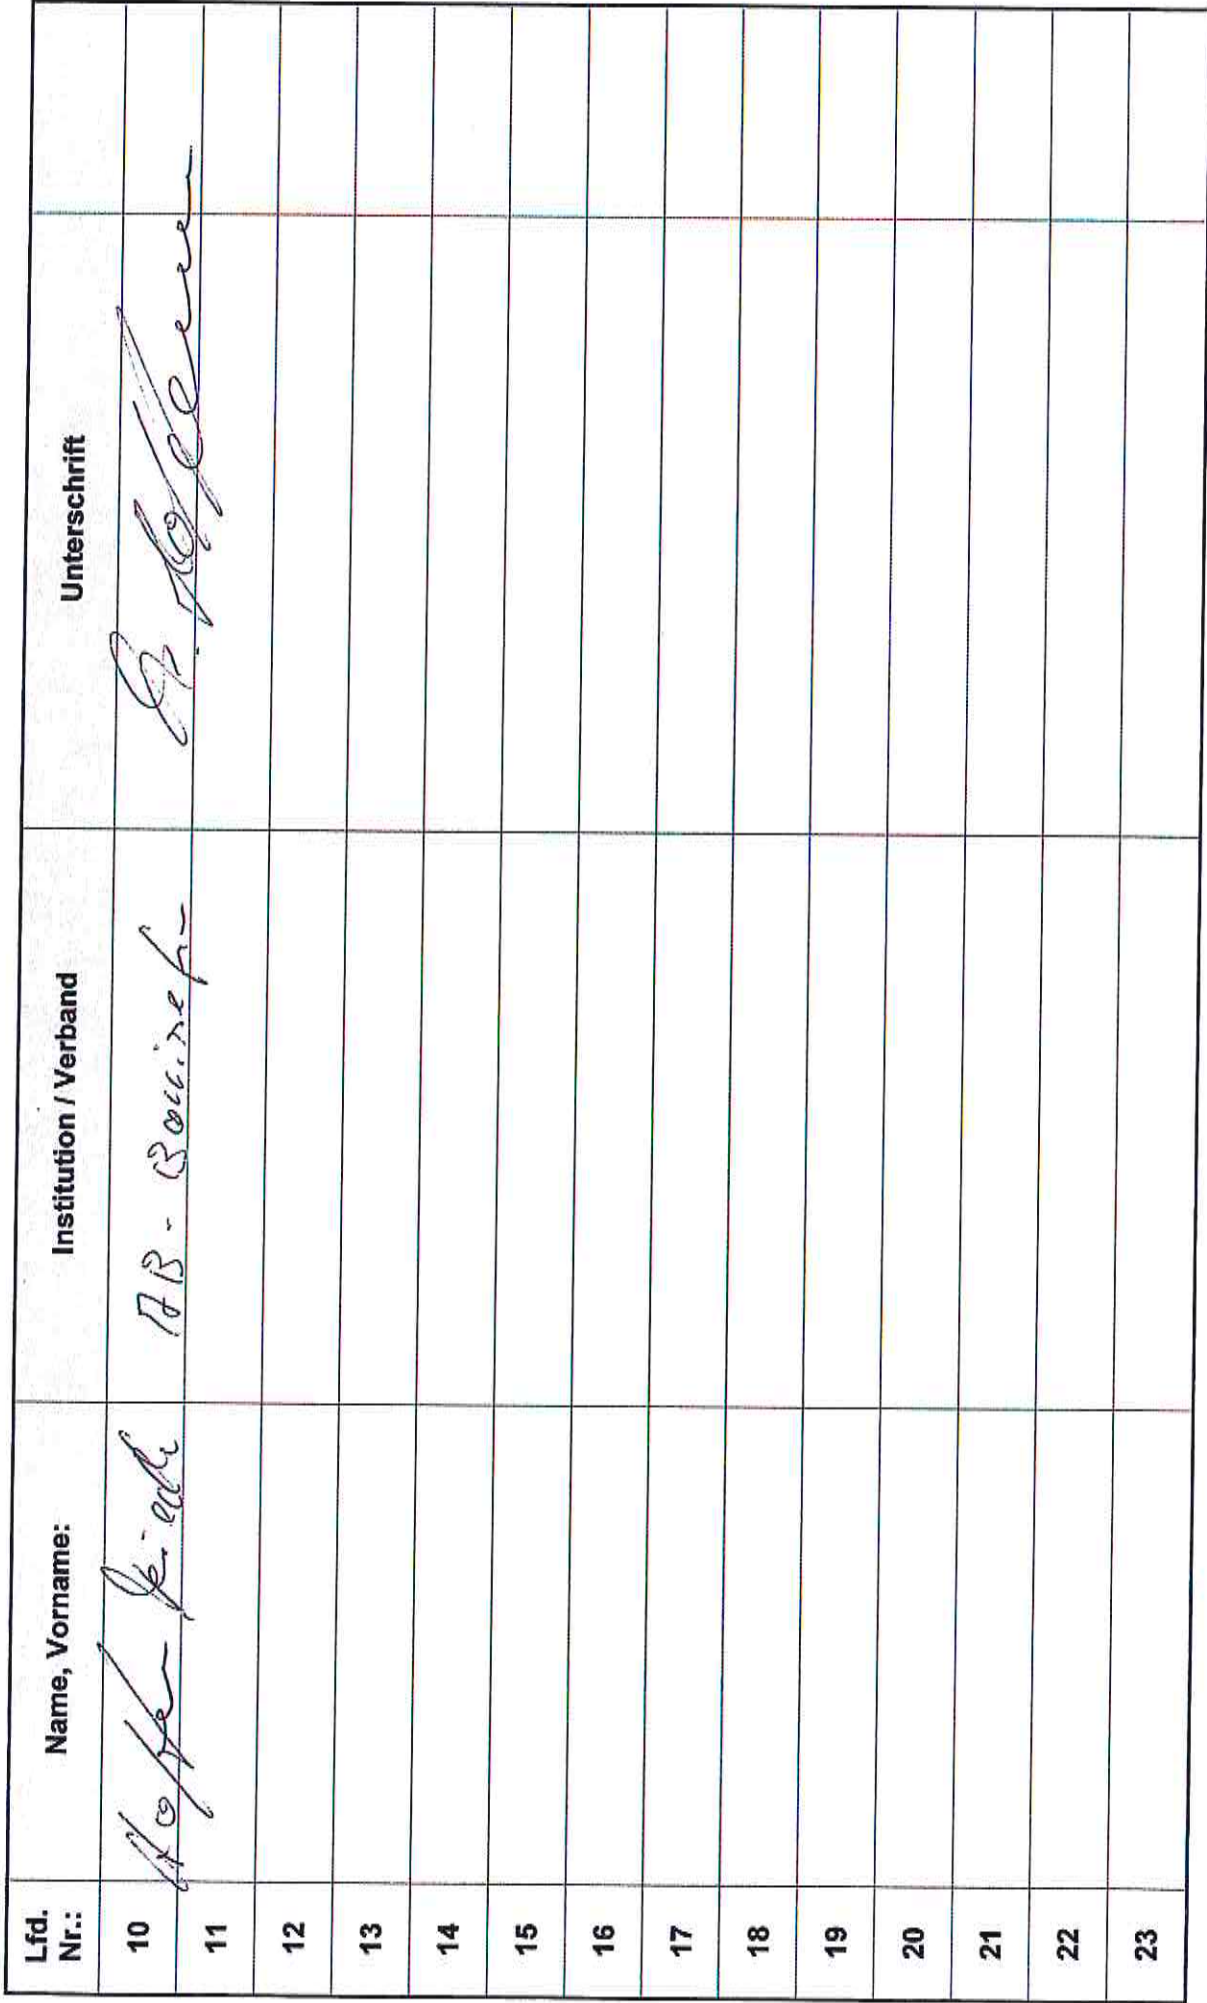 Lfd. Nr.: Name, Vorname: Institution / Verband Unterschrift
10 AB -
11
12
13
14
15
16
17
18
19
20
21
22
23